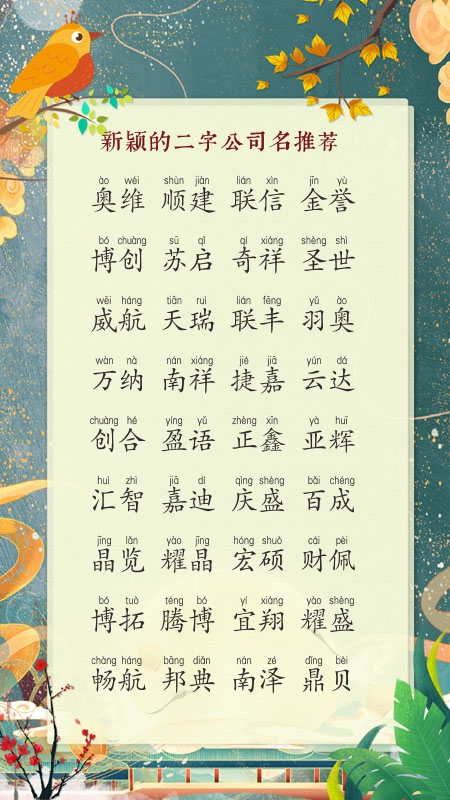 新颖的二字公司名推荐
ào wéi shùn jiàn lián xìn jīn yù
奥维 顺建 联信 金誉
bó chuàng sū qǐ qí xiáng shèng shì
博创 苏启 奇祥 圣世
wēi háng tiān ruì lián fēng yǔ ào
威航 天瑞 联丰 羽奥
wàn nà nán xiáng jié jiā yún dá
万纳 南祥 捷嘉 云达
chuàng hé yíng yǔ zhèng xīn yà huī
创合 盈语 正鑫 亚辉
huì zhì jiā dí qìng shèng bǎi chéng
汇智 嘉迪 庆盛 百成
jīng lǎn yào jīng hóng shuò cái pèi
晶览 耀晶 宏硕 财佩
bó tuò téng bó yí xiáng yào shèng
博拓 腾博 宜翔 耀盛
chàng háng bāng diǎn nán zé dǐng bèi
畅航 邦典 南泽 鼎贝